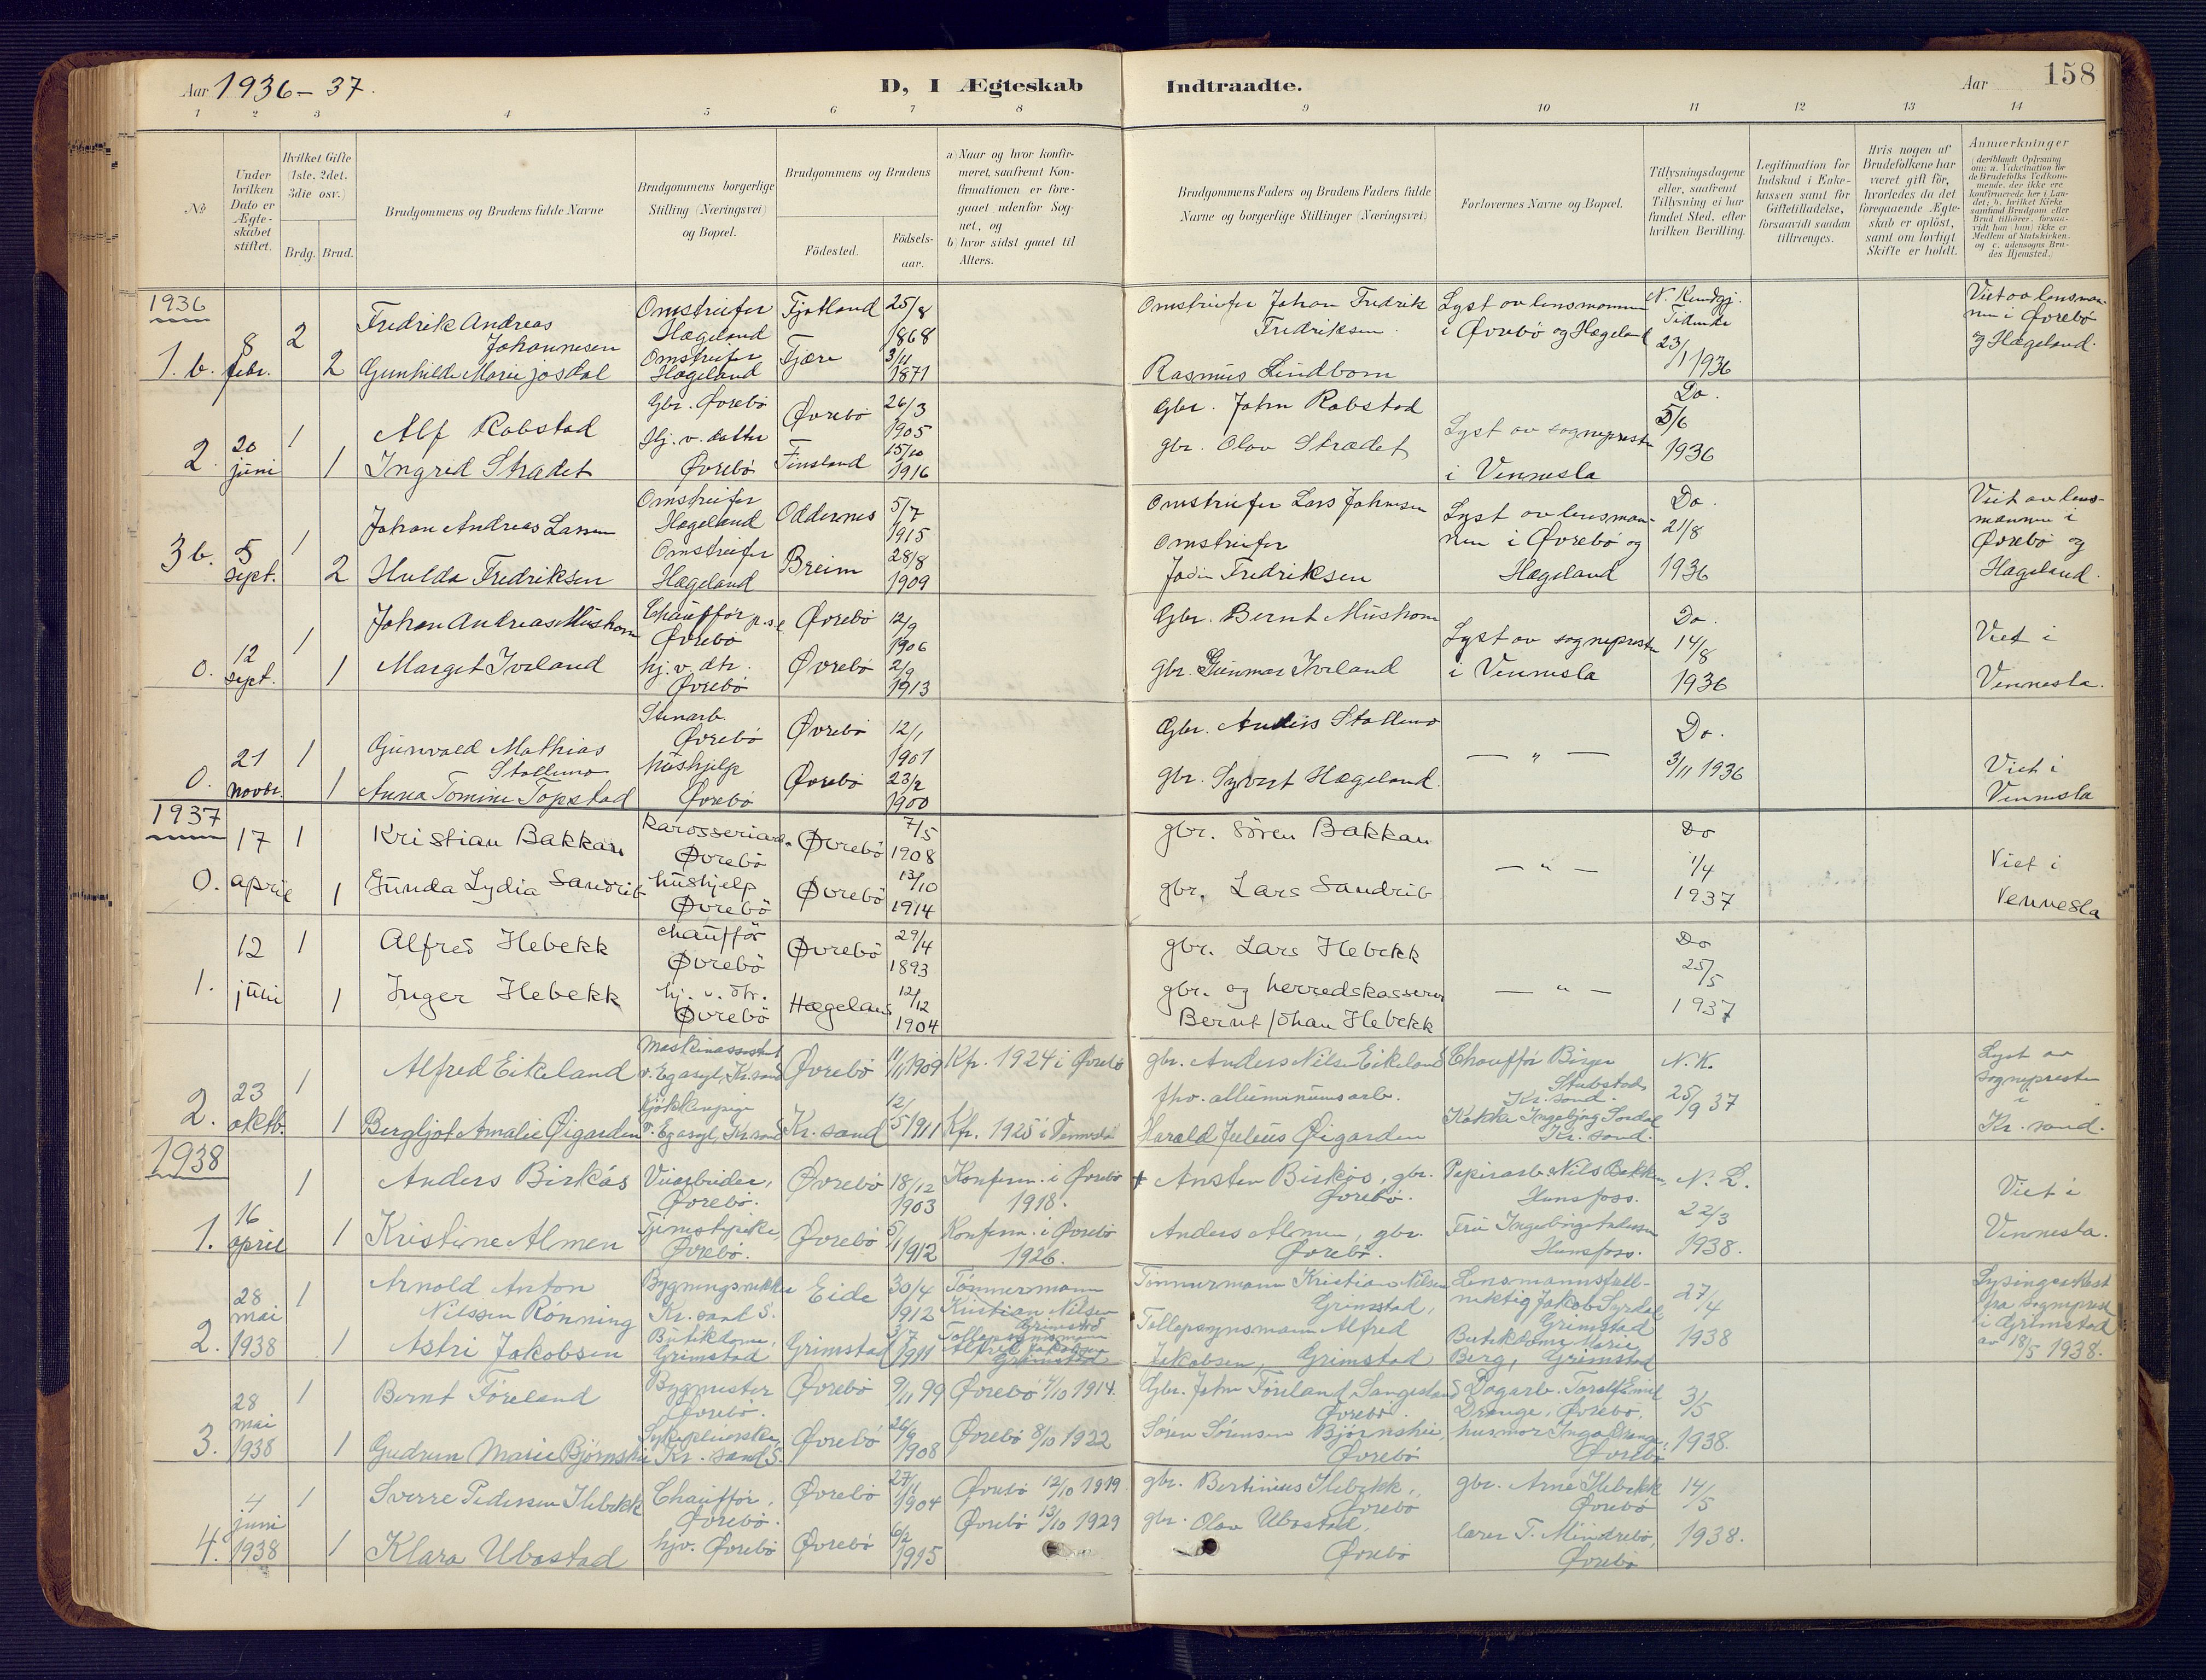 Aar 1936-37.
D, I Ægteskab Indtraadte.
Aar 158
1 2 3 4 5 6 7 8 9 10 11 12 13 14
No
Under hvilken Dato er Ægteskabet stiftet.
Hvilket Gifte (1ste, 2det, 3die osv.)
Brdg. Brud.
Brudgommens og Brudens fulde Navne
Brudgommens borgerlige Stilling (Næringsvei) og Bopæl.
Brudgommens og Brudens
Födested.
Födsels-aar.
a) Naar og hvor konfirmeret, saafremt Konfirmationen er foregaaet udenfor Sognet, og
b) hvor sidst gaaet til Alters.
Brudgommens Faders og Brudens Faders fulde Navne og borgerlige Stillinger (Næringsvei)
Forlovernes Navne og Bopæl.
Tillysningsdagene eller, saafremt Tillysning ei har fundet Sted, efter hvilken Bevilling.
Legitimation for Indskud i Enkekassen samt for Giftetilladelse, forsaavidt saadan tiltrænges.
Hvis nogen af Brudefolkene har været gift för, hvorledes da det foregaaende Ægteskab er oplöst, samt om lovligt Skifte er holdt.
Anmærkninger
1936
1.b. 8 febr. 2 Fredrik Andreas Johannesen Omstreifer Hægeland Fjotland 25/8 1868
2 Gunhilde Marie Josdal Omstreifer Hægeland Fjære 3/11 1871
Omstreifer Johan Fredrik Fredriksen.
Rasmus Lindbom
Lyst av lensmannen i Øvrebö og Hægeland
N. Kundgj. Tidende 23/1 1936
Viet av lensmannen i Øvrebö og Hægeland.
2. 20 juni 1 Alf Robstad Gbr. Øvrebö Øvrebö 26/3 1905
1 Ingrid Strædet Hj. v. datter Øvrebö Finsland 15/10 1916
Gbr. John Robstad
gbr. Olav Strædet
Lyst av sognepresten i Vennesla
Do. 5/6 1936
3 b. 5 sept. 1 Johan Andreas Larsen Omstreifer Hægeland Oddernes 5/7 1915
2 Hulda Fredriksen Omstreifer Hægeland Breim 28/8 1909
Omstreifer Lars Johnsen
Omstreifer Fredriksen
Lyst av lensmannen i Øvrebö og Hægeland
Do. 21/8 1936
Viet av lensmannen i Øvrebö og Hægeland.
0. 12 sept. 1 Johan Andreas Mushom Chauffför p.s.t. Øvrebö Øvrebö 12/9 1906
1 Marget Iveland hj. v. dtr. Øvrebö Øvrebö 2/9 1913
Gbr. Bernt Mushom
gbr. Gunnar Iveland
Lyst av sognepresten i Vennesla
Do. 14/8 1936
Viet i Vennesla.
0. 21 novbr. 1 Gunvald Mathias Stallemo Stenarb. Øvrebö Øvrebö 12/1 1901
1 Anna Tomine Topstad hushjelp Øvrebö Øvrebö 23/2 1900
Gbr. Anders Stallemo
gbr. Syvert Hægeland.
— " —
Do. 3/11 1936
Viet i Vennesla
1937
0. 17 april 1 Kristian Bakkan karosseriarb. Øvrebö Øvrebö 7/5 1908
1 Gunda Lydia Sandrib hushjelp Øvrebö Øvrebö 13/10 1914
gbr. Sören Bakkan
gbr. Lars Sandrib
— " —
Do 1/4 1937
Viet i Vennesla
1. 12 juni 1 Alfred Hebekk chauffför Øvrebö Øvrebö 29/4 1893
1 Inger Hebekk hj. v. dtr. Øvrebö Hægeland 12/12 1904
gbr. Lars Hebekk
gbr. og herredskasserer Bernt Johan Hebekk
— " —
Do 25/5 1937
2. 23 oktb. 1 Alfred Eikeland Maskinassistent v. Eg asyl, Kr.sand Øvrebö 11/11 1909 Kfr. 1924 i Øvrebö
1 Bergljot Amalie Øigarden Kjökkenpige v. Eg asyl, Kr.sand Kr. sand 12/5 1911 Kfr. 1925 i Vennesla
gbr. Anders Nilsen Eikeland
fhv. alluminumsarb. Harald Julius Øigarden
Chauffför Birger Stubstad, Kr. sand.
Kokke Ingebjörg Sordal Kr. sand.
N. K. 25/9 37
Lyst av sognepresten i Kr. sand.
1938
1. 16 april 1 Anders Birkås Veiarbeider, Øvrebö. Øvrebö 18/12 1903 Konferm. i Øvrebö 1918.
1 Kristine Almen Tjenestepike, Øvrebö. Øvrebö 5/1 1912 Konferm. i Øvrebö 1926.
+ Ansten Birkås, gbr. Øvrebö.
Anders Almen, gbr. Øvrebö.
Papirarb. Nils Bakken, Hunsfoss.
Fru Ingeborg Andersen Hunsfoss.
N. L. 22/3 1938.
Viet i Vennesla.
2. 28 mai 1938 1 Arnold Anton Nilssen Rönning Bygningssnekker Kr. sand S. Eide 30/4 1912 Tönnermann Kristian Nilsen Grimstad
1 Astri Jakobsen Butikdame, Grimstad Grimstad 5/7 1911 Tolloppsynsmann Alfred Jakobsen Grimstad
Tömmermann Kristian Nilsen Grimstad,
Tolloppsynsmann Alfred Jakobsen, Grimstad
Lensmannsfullmektig Jakob Syrdal Grimstad
Butikdame Marie Berg, Grimstad
27/4 1938
Lysingsattest fra sogneprest i Grimstad av 18/5 1938.
3. 28 mai 1938 1 Bernt Föreland Bygmester Øvrebö. Øvrebö 9/11 99 Øvrebö 4/10 1914.
1 Gudrun Marie Björnshei Sykepleierske, Kr. sand S. Øvrebö 26/9 1908 Øvrebö 8/10 1922
Gbr. John Föreland, Sangesland Øvrebö.
Sören Sörensen Björnshei, Øvrebö
Dagarb. Toralf Emil Drange, Øvrebö.
husmor Inga Drange, Øvrebö
3/5 1938.
4. 4 juni 1938 1 Sverre Pedersen Hebekk Chauffför, Øvrebö. Øvrebö 27/1 1904 Øvrebö 12/10 1919.
1 Klara Ubostad hjv. Øvrebö Øvrebö 6/2 1915 Øvrebö 13/10 1929
gbr. Bertinius Hebekk, Øvrebö
gbr. Olav Ubostad, Øvrebö
gbr. Arne Hebekk Øvrebö
lærer T. Mindrebö, Øvrebö
14/5 1938.